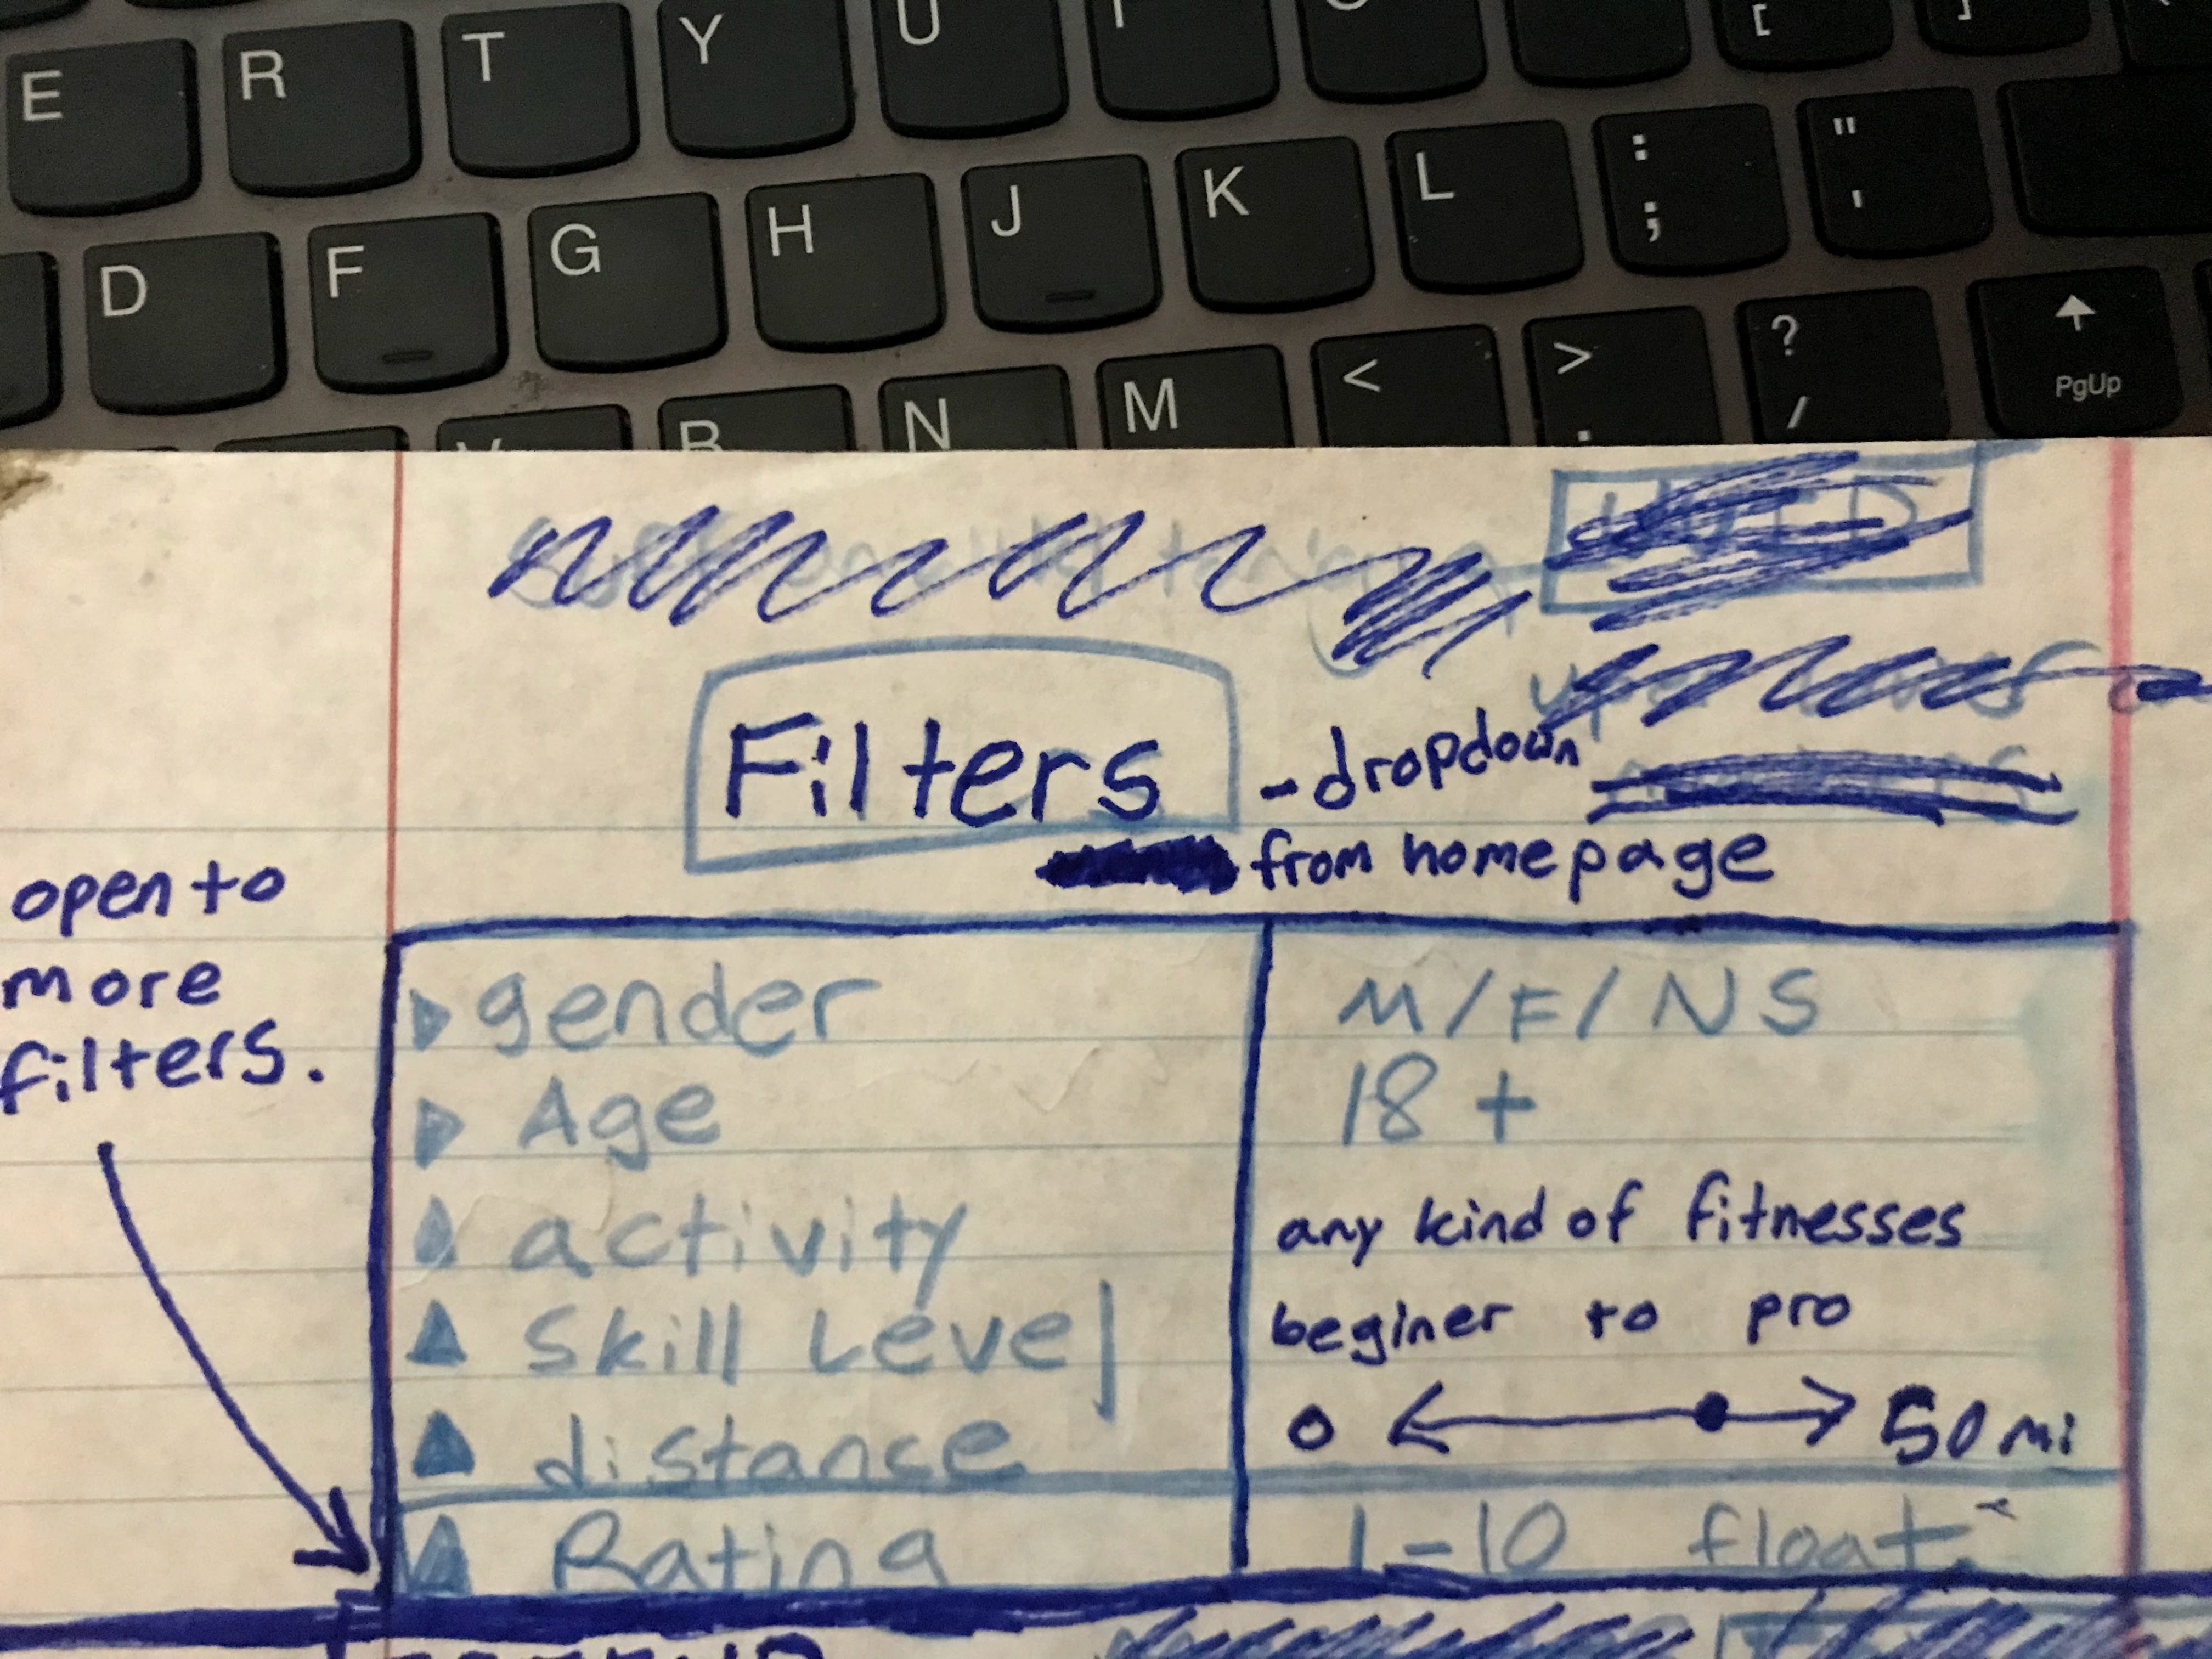 E R T Y U [ ]
D F G H J K L : ; " '
N M < > . ? / PgUp
Filters - dropdown
from homepage
open to
more
filters.
gender M/F/NS
Age 18 +
activity any kind of fitnesses
Skill Level beginer to pro
distance 0 50 mi
Rating 1-10 float